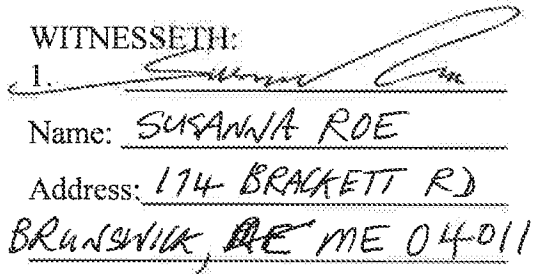 WITNESSETH:
1.
Name: SUSANNA ROE
Address: 174 BRACKETT RD
BRUNSWICK, ME 04011